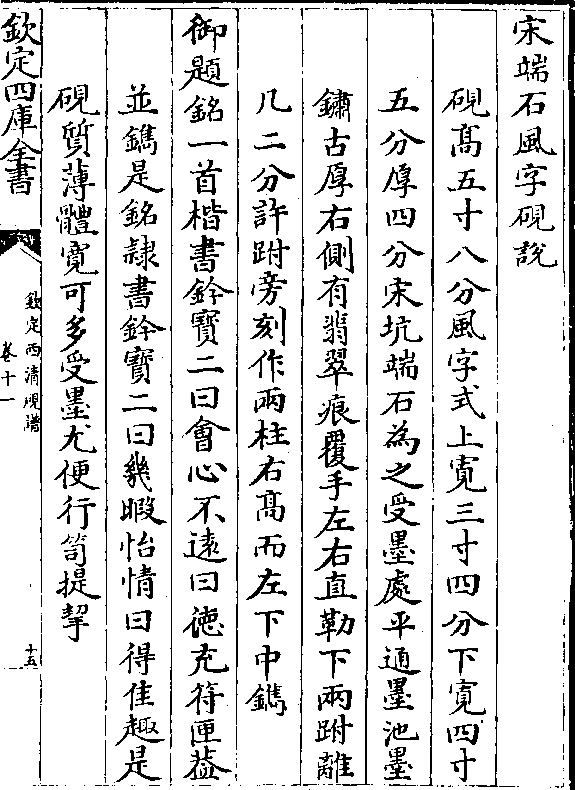 宋端石風字硯說
硯髙五寸八分風字式上寛三寸四分下寛四寸
五分厚四分宋坑端石為之受墨處平通墨池墨
鏽古厚右側有翡翠痕覆手左右直勒下兩跗離
几二分許跗旁刻作兩柱右髙而左下中鐫
御題銘一首楷書鈐寳二曰會心不遠曰徳充符匣葢
並鐫是銘隷書鈐寳二曰幾暇怡情曰得佳趣是
硯質薄體寛可多受墨尤便行笥提挈
欽定四庫全書
欽定西清硯譜
卷十一
十五